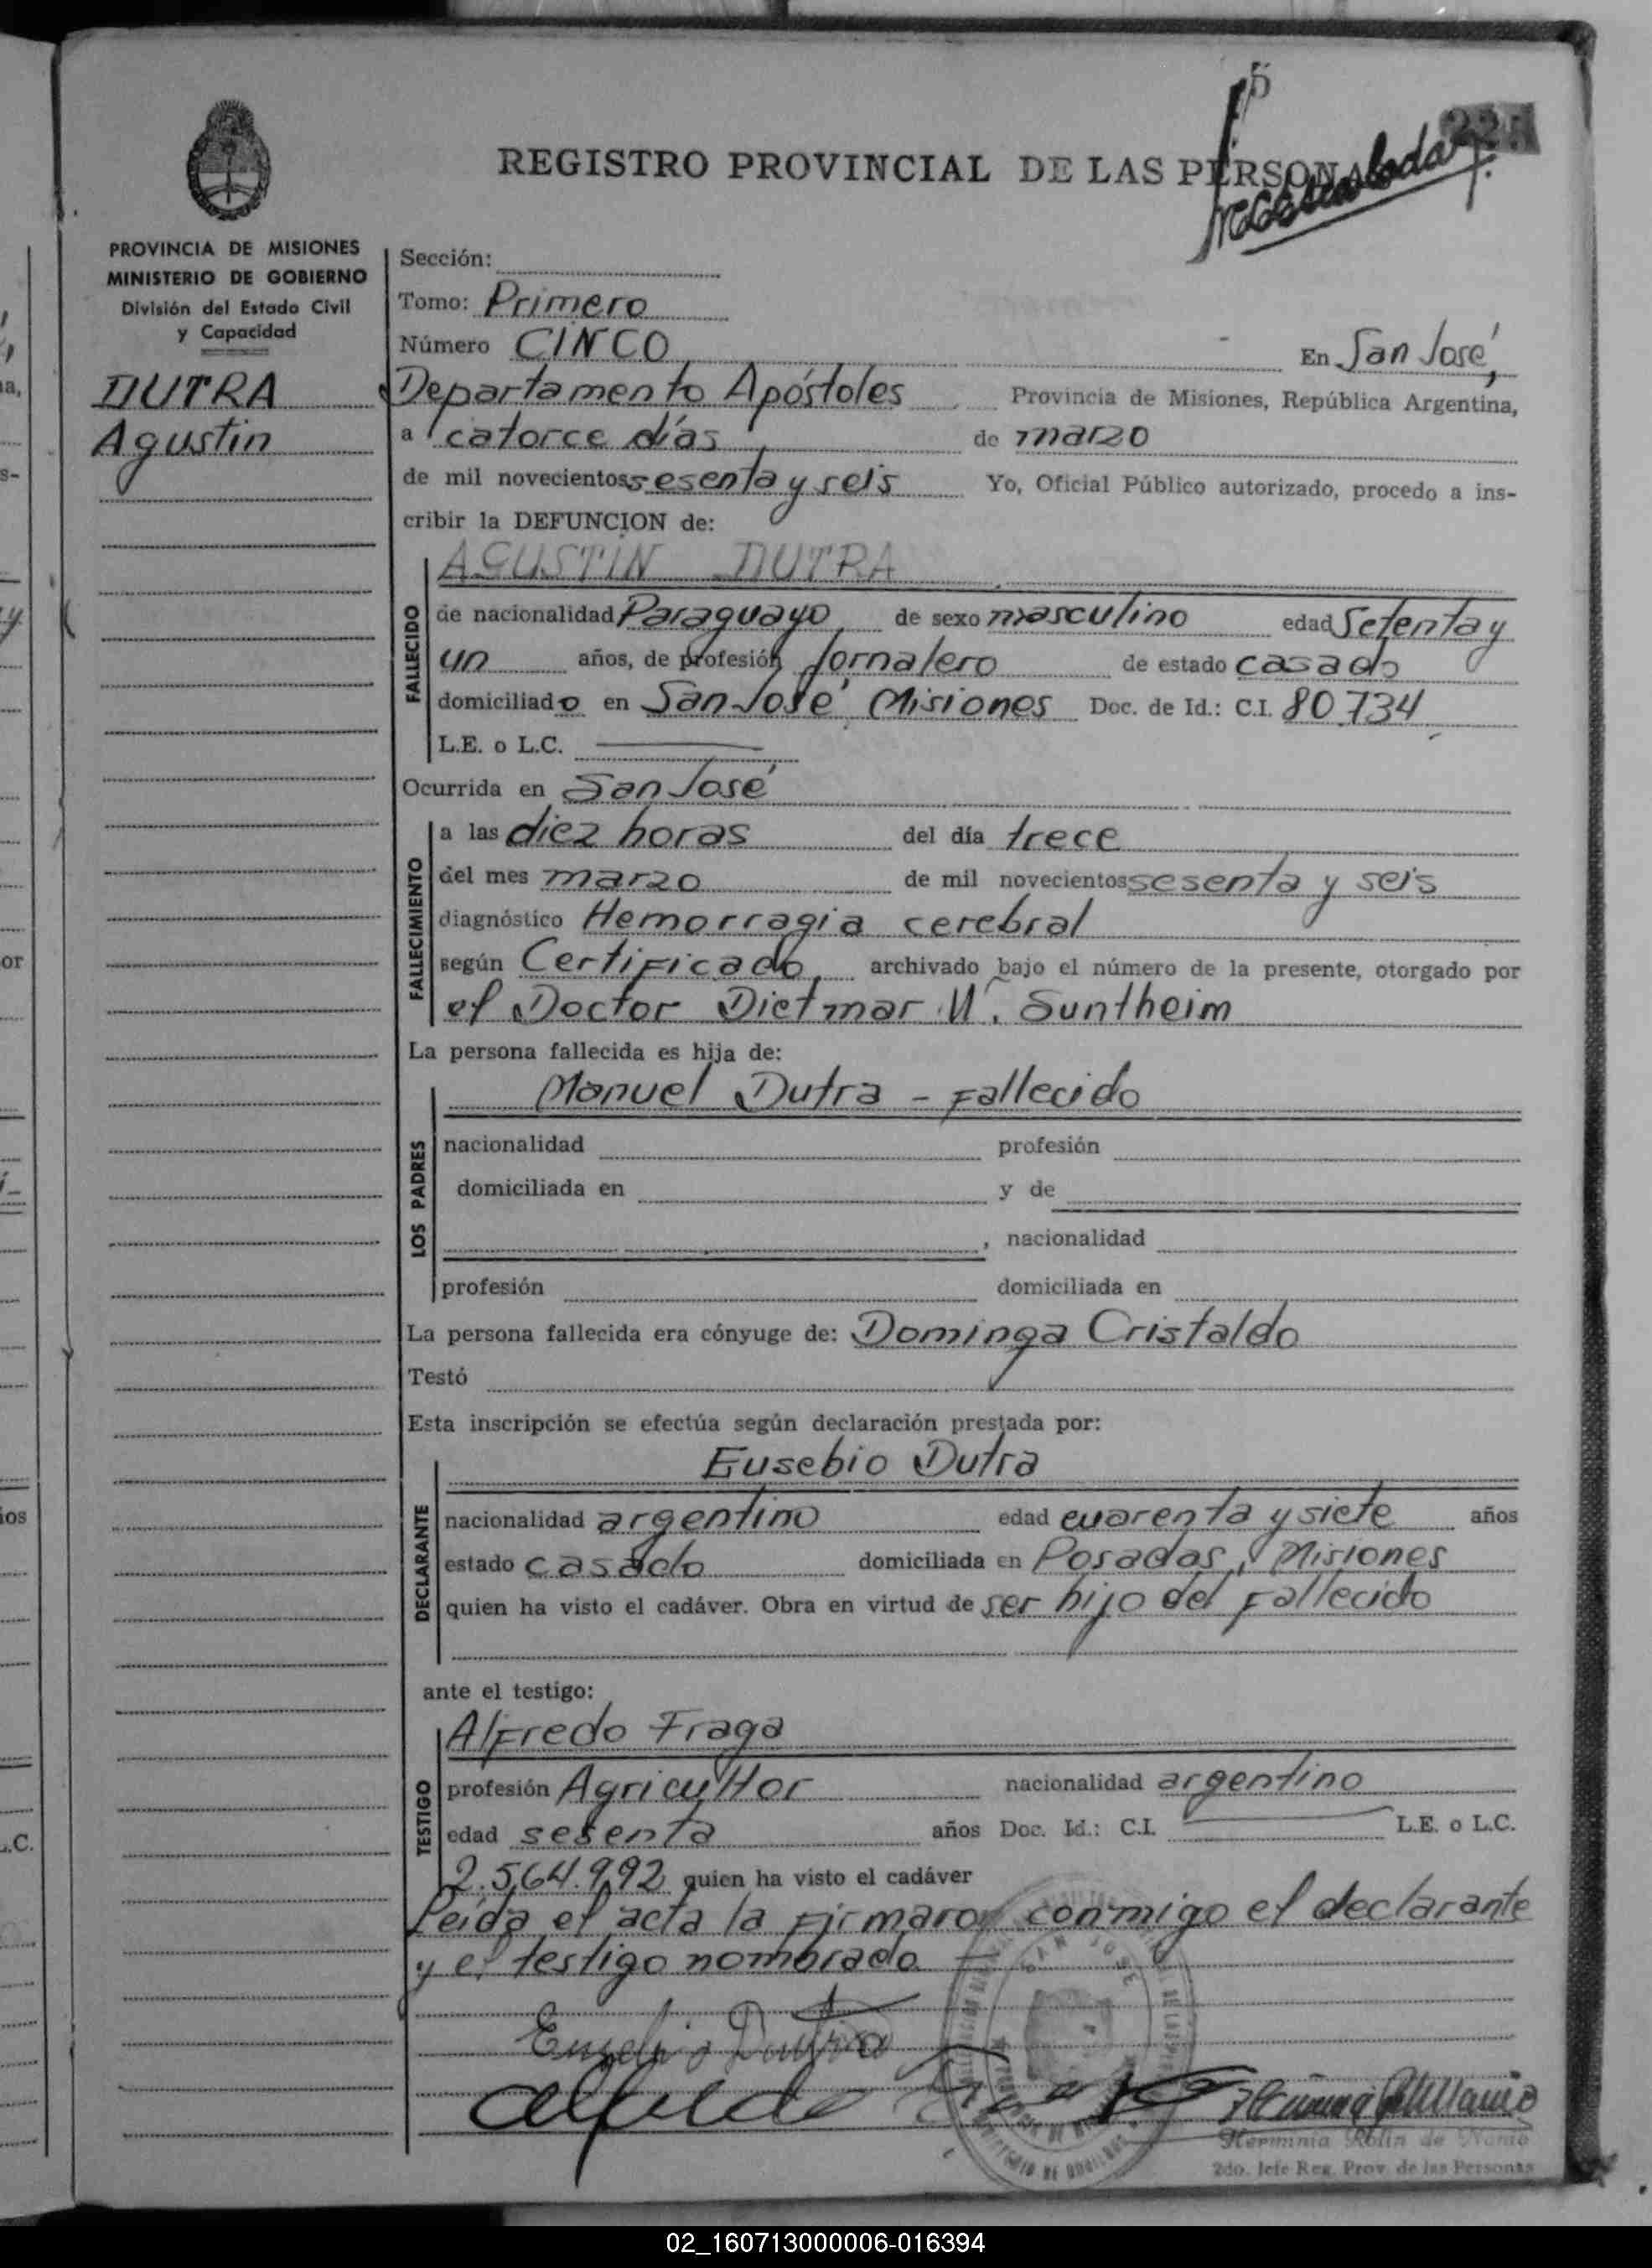 5
225
REGISTRO PROVINCIAL DE LAS PERSONAS
PROVINCIA DE MISIONES
MINISTERIO DE GOBIERNO
División del Estado Civil
y Capacidad
DUTRA
Agustin
Sección:
Tomo: Primero
Número CINCO En San José,
Departamento Apóstoles Provincia de Misiones, República Argentina,
a catorce días de marzo
de mil novecientos sesenta y seis Yo, Oficial Público autorizado, procedo a ins-
cribir la DEFUNCION de:
AGUSTIN DUTRA
FALLECIDO
de nacionalidad Paraguayo de sexo masculino edad Setenta y
un años, de profesión Jornalero de estado casado
domiciliado en San José Misiones Doc. de Id.: C.I. 80.734
L.E. o L.C.
Ocurrida en San José
FALLECIMIENTO
a las diez horas del día trece
del mes marzo de mil novecientos sesenta y seis
diagnóstico Hemorragia cerebral
según Certificado archivado bajo el número de la presente, otorgado por
el Doctor Dietmar W. Suntheim
La persona fallecida es hija de:
LOS PADRES
Manuel Dutra - Fallecido
nacionalidad profesión
domiciliada en y de
, nacionalidad
profesión domiciliada en
La persona fallecida era cónyuge de: Dominga Cristaldo
Testó
Esta inscripción se efectúa según declaración prestada por:
DECLARANTE
Eusebio Dutra
nacionalidad argentino edad cuarenta y siete años
estado casado domiciliada en Posadas, Misiones
quien ha visto el cadáver. Obra en virtud de ser hijo del Fallecido
ante el testigo:
TESTIGO
Alfredo Fraga
profesión Agricultor nacionalidad argentino
edad sesenta años Doc. Id.: C.I. L.E. o L.C.
2.564.992 quien ha visto el cadáver
Leída el acta la Firmaron conmigo el declarante
y el testigo nombrado
SAN JOSE
Eusebio Dutra
Alfredo Fraga
Herminia Rolin de
2do. Jefe Reg. Prov. de las Personas
02_160713000006-016394